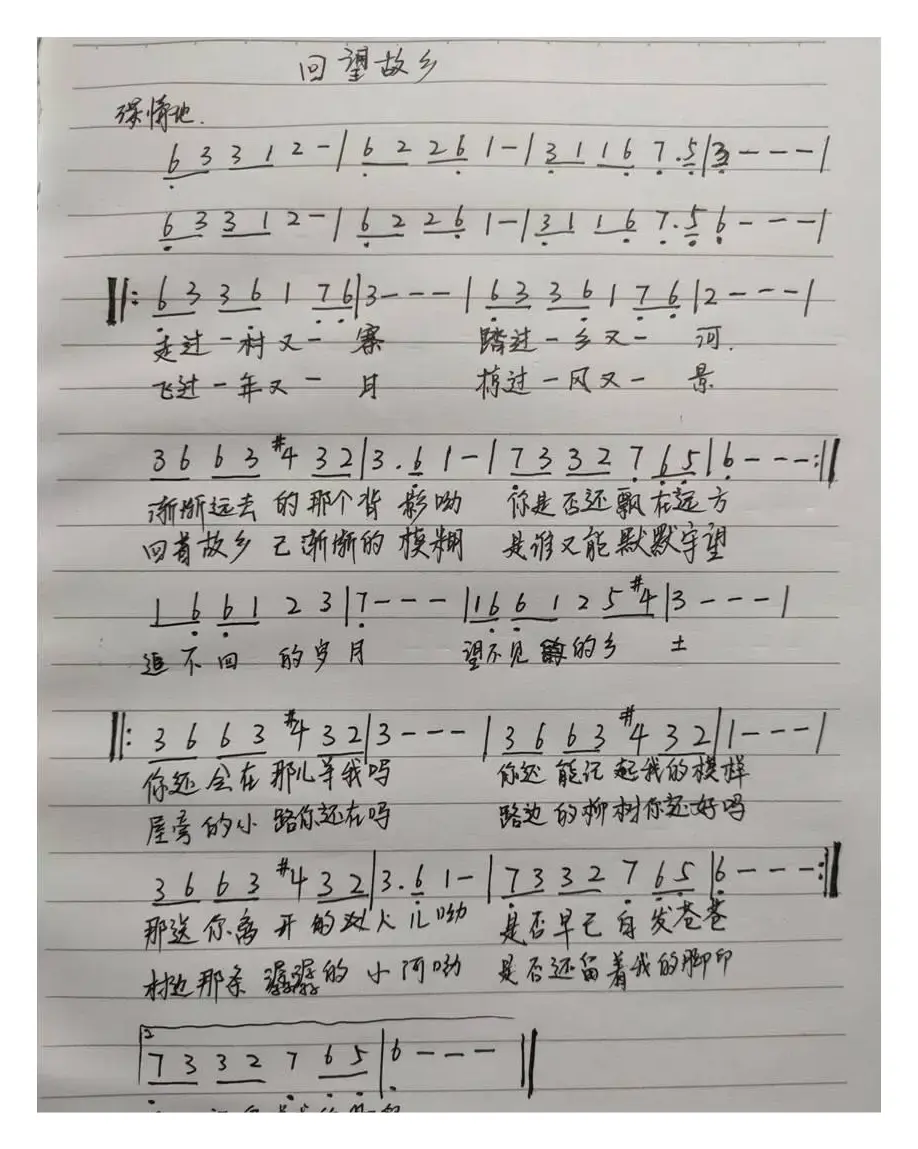 回望故乡
深情地.
6 3 3 1 2 - | 6 2 2 6 1 - | 3 1 1 6 7 . 5 | 3 - - - |
6 3 3 1 2 - | 6 2 2 6 1 - | 3 1 1 6 7 . 5 6 - - - |
‖: 6 3 3 6 1 7 6 | 3 - - - | 6 3 3 6 1 7 6 | 2 - - - |
走过一村又一 寨 踏过一乡又一 河.
飞过一年又一 月 掠过一风又一 景
3 6 6 3 #4 3 2 | 3 . 6 1 - | 7 3 3 2 7 6 5 | 6 - - - :‖
渐渐远去 的那个背 影呦 你是否还飘在远方
回首故乡 已渐渐的 模糊 是谁又能默默守望
1 6 6 1 2 3 | 7 - - - | 1 6 6 1 2 5 #4 | 3 - - - |
追不回 的岁月 望不见 的乡 土
‖: 3 6 6 3 #4 3 2 | 3 - - - | 3 6 6 3 #4 3 2 | 1 - - - |
你还会在 那儿等我吗 你还 能记 起我的模样
屋旁的小 路你还在吗 路边的柳树你还好吗
3 6 6 3 #4 3 2 | 3 . 6 1 - | 7 3 3 2 7 6 5 | 6 - - - :‖
那送你离 开 的 人儿呦 是否早已白发苍苍
村边那条 潺潺的 小河呦 是否还留着我的脚印
2
7 3 3 2 7 6 5 | 6 - - - ‖